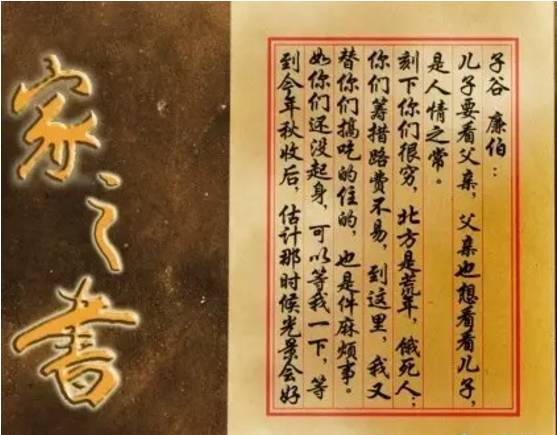 家之書
子谷 廉伯：
儿子要看父亲，父亲也想看看儿子，
是人情之常。
刻下你们很穷，北方是荒年，饿死人；
你们筹措路费不易，到这里，我又
替你们搞吃的住的，也是件麻烦事。
如你们还没起身，可以等我一下，等
到今年秋收后，估计那时候光景会好